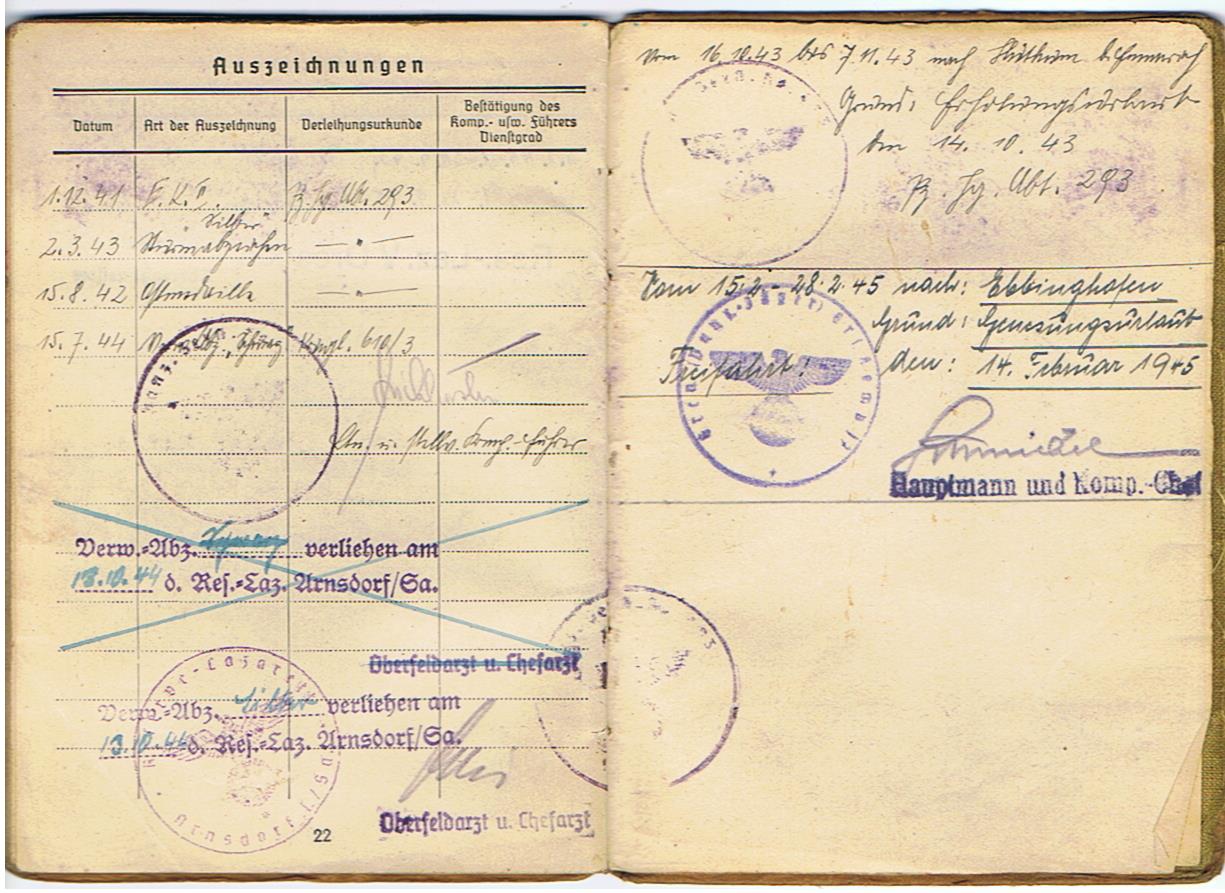 Auszeichnungen
Datum
Art der Auszeichnung
Verleihungsurkunde
Bestätigung des
Komp.- usw. Führers
Dienstgrad
1.12.41 E.K.II. Pz. Jg. Abt. 293
Silber
2.3.43 Sturmabzeichen — " —
15.8.42 Ostmedaille — " —
15.7.44 610/3
Ltn. u. stellv. Komp.-Führer
Verw.-Abz. Schwarz verliehen am
13.10.44 d. Res.-Laz. Arnsdorf/Sa.
Oberfeldarzt u. Chefarzt
Verw.-Abz. Silber verliehen am
13.10.44 d. Res.-Laz. Arnsdorf/Sa.
Oberfeldarzt u. Chefarzt
22
Vom 16.10.43 bis 7.11.43 nach
Grund: Erholungsurlaub
den 14.10.43
Pz. Jg. Abt. 293
Vom 15.2 - 28.2.45 nach: Ebbinghofen
Grund: Genesungsurlaub
Freifahrt! den: 14. Februar 1945
Hauptmann und Komp.-Chef